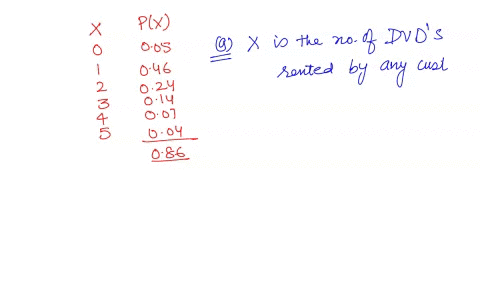 X P(X)
0 0.05
1 0.46
2 0.24
3 0.14
4 0.07
5 0.04
0.86
(a) X is the no. of DVD's
rented by any cust